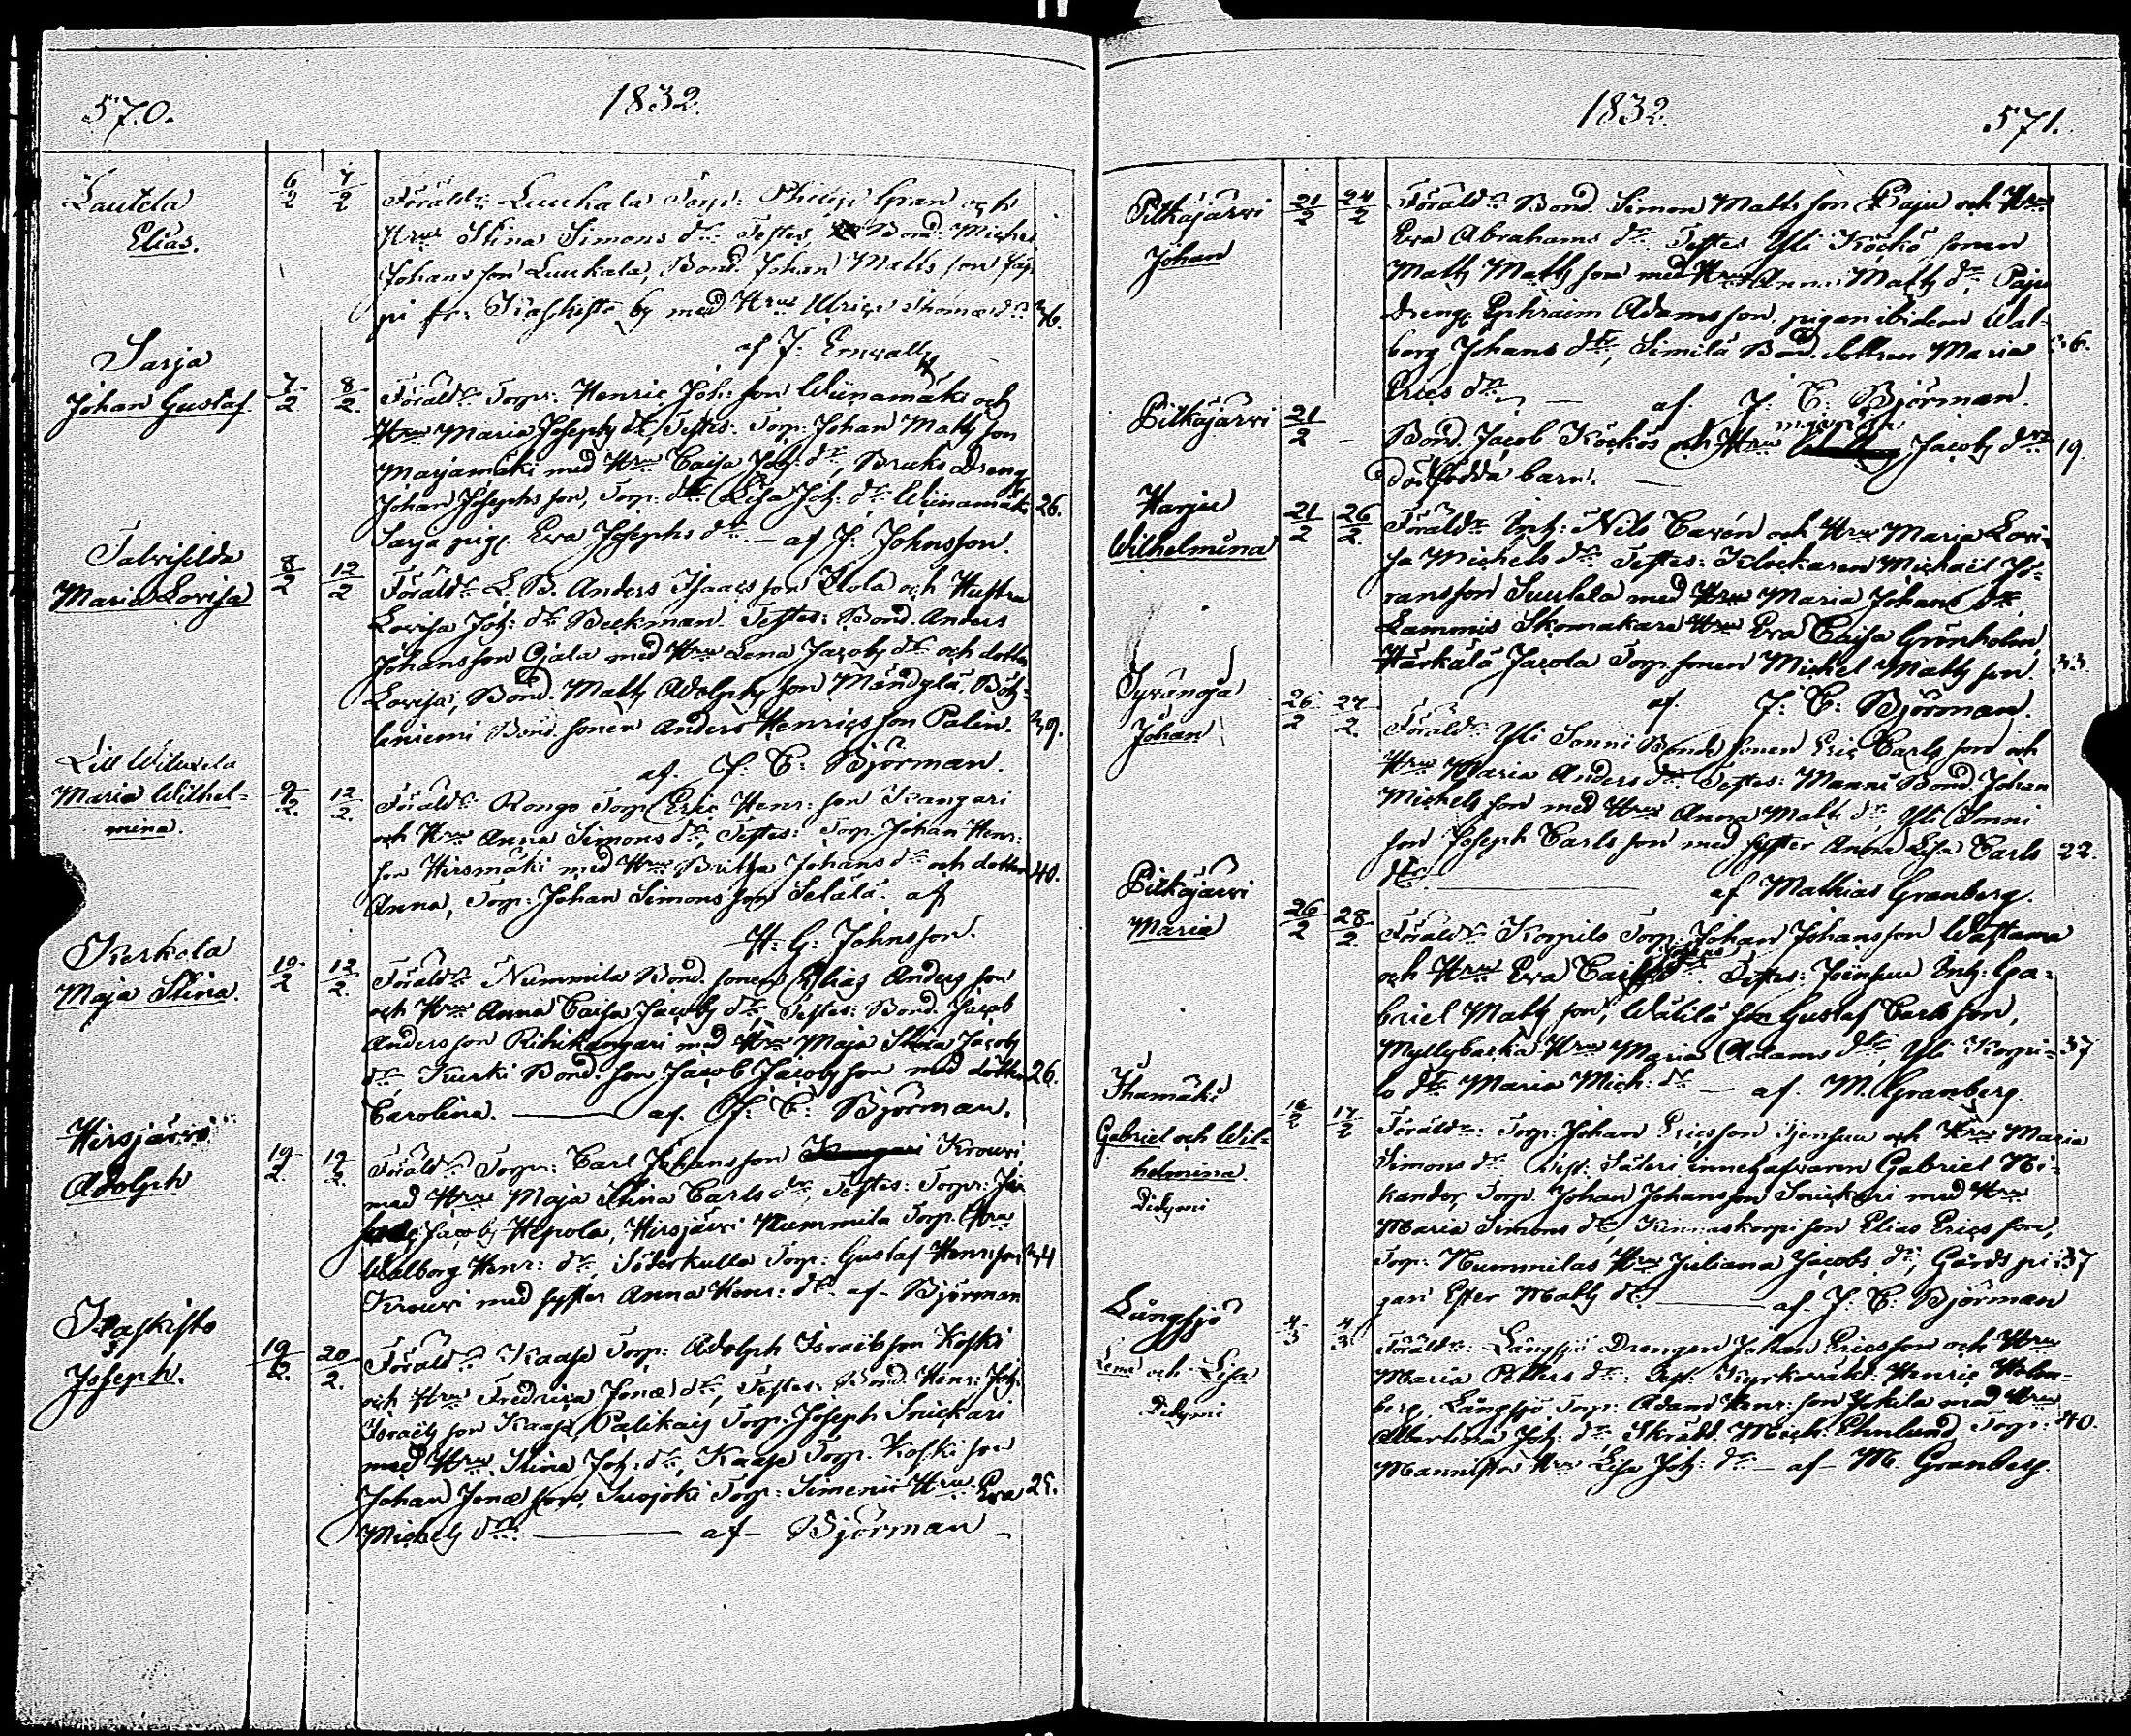 570.
1832.
Lautela
Elias.
6/2 7/2
Föräldr: Luukala Torp: Philip Gran och
Hru Stina Simons dr. Testes, Bond. Michel
Johans son Luukala, Bond. Johan Matts son
pi fr: Kaskisto by med Hru Ulrica Thomæ dr 36.
af J: Enwall
Sarja
Johan Gustaf.
7/2. 8/2.
Föräldr: Torp: Henric Joh: son Wiinamäki och
Hru Maria Josephs dr, Testes: Torp: Johan Matts son
Marjamäki med Hru Caisa Joh: dr, Bruks Dreng
Johan Josephs son, Torp: dr Lisa Joh: dr Wiinamäki 26.
Sarja pig. Eva Josephs dr. – af J: Johnsson.
Talwisilda
Maria Lovisa
8/2 12/2
Föräldr L. B. Anders Isaacs son Klola och Hustru
Lovisa Joh: dr Beckman. Testes: Bond. Anders
Johans son Ojala med Hru Lena Jacobs dr och dotter
Lovisa, Bond. Matts Adolphs son Mändylä,
laniemi Bond. sonen Anders Henrics son Palin. 39.
af. J: E: Björman.
Lill Wilwela
Maria Wilhel-
mina.
9/2. 12/2.
Föräldr: Rongo Torp. Eric Henr: son Kangari
och Hru Anna Simons dr, Testes: Torp. Johan Henr:
son Hirsmäki med Hru Britha Johans dr och dotter 40.
Anna, Torp: Johan Simons son Selälä. af
H: G: Johnsson.
Kerkola
Maja Stina.
10/2 12/2.
Föräldr: Nummila Bond. sonen Elias Anders son
och Hru Anna Caisa Jacobs dr, Testes: Bond. Jacob
Anders son Riihikangari med Hru Maja Stina Jacobs
dr, Kurki Bond. son Jacob Jacobs son med dotter 26.
Carolina. — af. J: E: Björman.
Hirsjärvi
Adolph
19/2. 19/2.
Föräldr: Torp: Carl Johans son Krouvi
med Hru Maja Stina Carls dr, Testes: Torp:
Jacobs Hepola, Hirsjärvi Nummila Torp. Hru
Walborg Henr: dr, Söderkulla Torp: Gustaf Henr: son 34
Krouvi med syster Anna Henr: dr. af – Björman
Kaskisto
Joseph.
19/2. 20/2.
Föräldr: Kaase Torp: Adolph Israels son Koski
och Hru Fredrica Jonæ dr, Testes: Bond. Henr: Joh:
Israels son Kaase, Palikais Torp. Joseph Snickari
med Hru Stina Joh: dr, Kaase Torp. Koski son
Johan Jonæ son, Suojoki Torp: Simenii Hru Eva 25.
Michels dr. — af – Björman –
1832.
571.
Pitkäjärvi
Johan
21/2 24/2
Föräldr Bond. Simon Matts son Paju och Hru
Eva Abrahams dr. Testes Yli Köökö sonen
Matts Matts son med Hru Anna Matts dr, Paju
Dreng Ephraim Adams son, pigan ibidem Wal-
borg Johans dr, Similä Bond. dottren Maria 36.
Erics dr. — af. J: E: Björman.
Pitkäjärvi
21/2 –
Bond. Jacob Köökös och Hru Jacobs drs 19.
dödfödda barn. —
Harju
Wilhelmina
21/2 26/2.
Föräldr Inh: Nils Cavén och Hru Maria Lovi-
sa Michels dr. Testes: Klockaren Michaël Jö-
ransson Suulela med Hru Maria Johans dr,
Lammis Skomakare Hru Eva Caisa Grönholm,
Härkälä Jacola Torp. sonen Michel Matts son. 33.
af. J: E: Björman.
Syränoja
Johan
26/2 27/2.
Föräldr: Yli Sonni Bond. sonen Eric Carls son och
Hru Maria Anders dr. Testes: Manni Bond. Johan
Michels son med Hru Anna Matts dr, Yli Sonni
son Joseph Carls son med syster Anna Lisa Carls 22.
dr. — af Mathias Granberg.
Pitkäjärvi
Maria
26/2 28/2.
Föräldr: Korpilo Torp. Johan Johansson Wästama
och Hru Eva Caisa dr. Testes: Joensuu Inh: Ga-
briel Matts son, Wätilä son Gustaf Carls son,
Myllybacka Hru Maria Adams dr, Yli Korpi- 37
lo dr Maria Mich: dr — af. M. Granberg.
Ihamäki
Gabriel och Wil-
helmina.
Didymi
16/2 17/2
Föräldr: Torp: Johan Ericsson Ojensuu och Hru Maria
Simons dr. Test: Säteri innehafvaren Gabriel Ni-
kander, Torp. Johan Johansson Snickari med Hru
Maria Simons dr, Kinnaskorpi son Elias Erics son,
Torp: Nummilas Hru Juliana Jacobs dr, Gårds pi- 37
gan Ester Matts dr. — af. J: E: Björman
Långsjö
Lena och Lisa
Didymi
4/3 4/3
Föräldr: Långsjö Drengen Johan Ericsson och Hru
Maria Petters dr: Test. Kyrkovakt: Henric Holm-
berg, Långsjö Torp: Adam Henr: son Jokela med Hru
Albertina Joh: dr, Skrädd. Mich: Ehnlund, Torp: 40.
Mannistö Hru Lisa Joh: dr – af – M. Granberg.